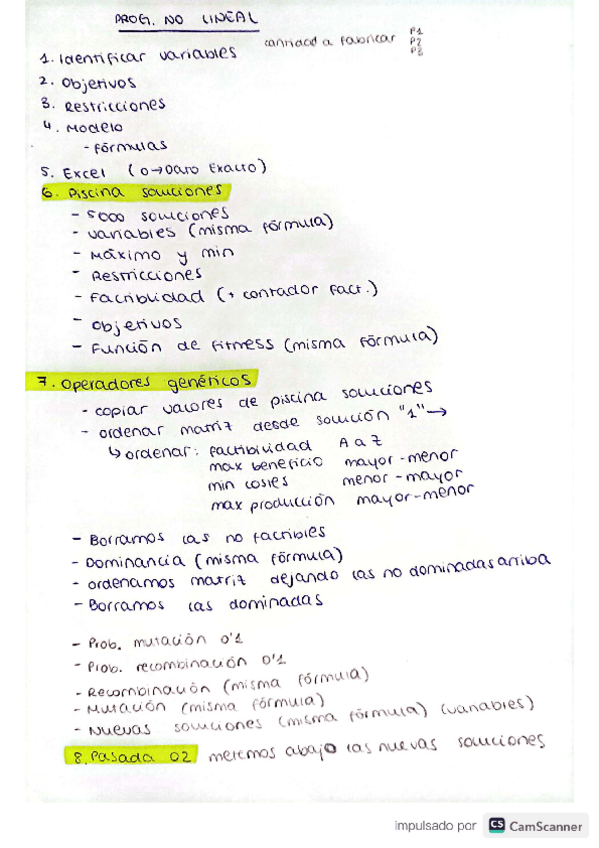 PROG. NO LINEAL
1. Identificar variables cantidad a fabricar P1
P2
P3
2. Objetivos
3. Restricciones
4. Modelo
- fórmulas
5. Excel (0→Dato Exacto)
6. Piscina soluciones
- 5000 soluciones
- variables (misma fórmula)
- Máximo y min
- Restricciones
- Factiblidad (+ contador fact.)
- Objetivos
- Función de fitness (misma fórmula)
7. Operadores genéticos
- copiar valores de piscina soluciones
- ordenar matriz desde solución "1"→
↳ ordenar: factibilidad A a Z
max beneficio mayor-menor
min costes menor-mayor
max producción mayor-menor
- Borramos las no factibles
- Dominancia (misma fórmula)
- ordenamos matriz dejando las no dominadas arriba
- Borramos las dominadas
- Prob. mutación 0'1
- Prob. recombinación 0'1
- Recombinación (misma fórmula)
- Mutación (misma fórmula)
- Nuevas soluciones (misma fórmula) (variables)
8. Pasada 02 metemos abajo las nuevas soluciones
impulsado por CS CamScanner